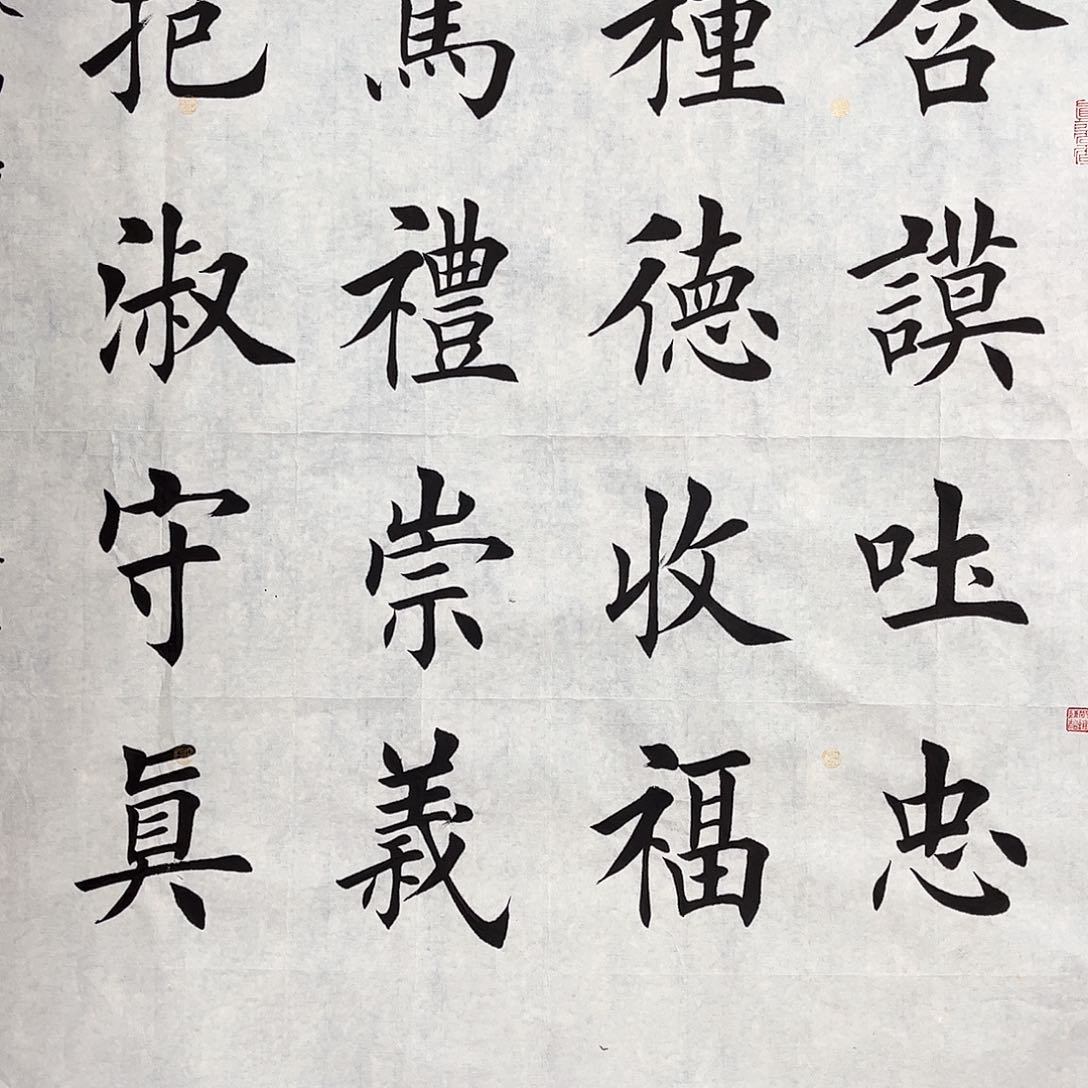 含謨吐忠
種德收福
篤禮崇義
抱淑守真